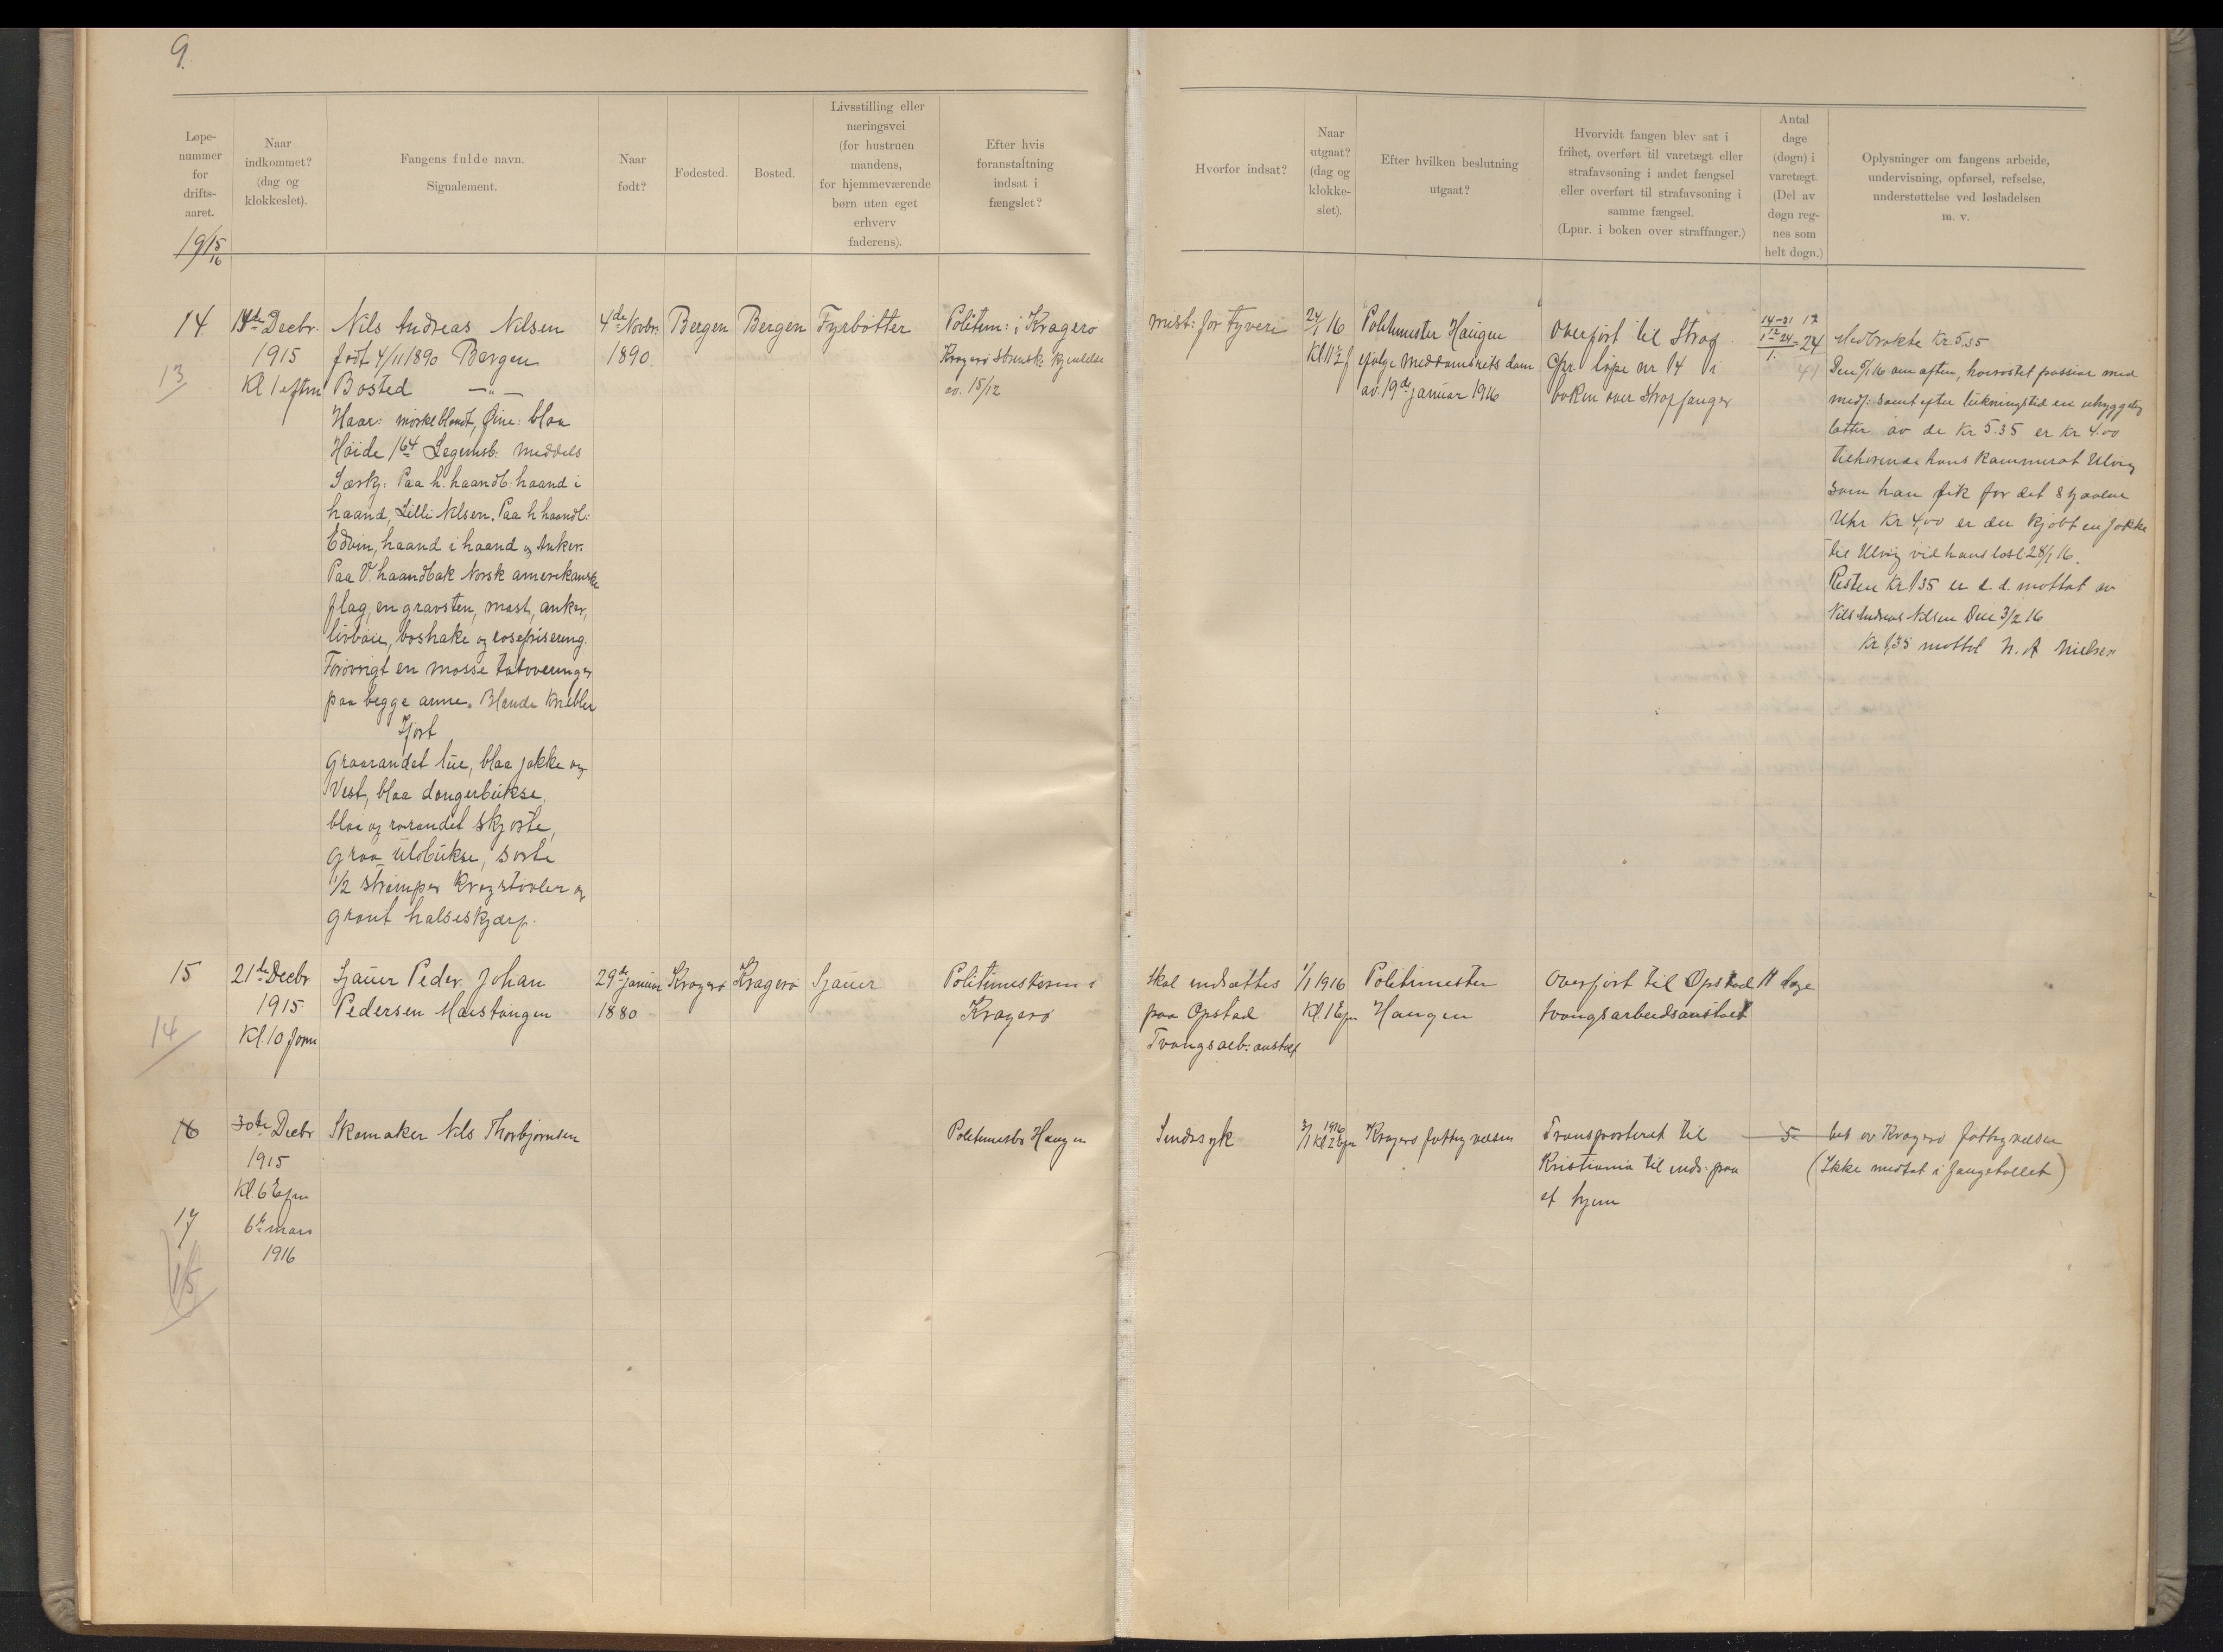 9.
Løpe-
nummer
for
drifts-
aaret.
19 15/16
Naar
indkommet?
(dag og
klokkeslet).
Fangens fulde navn.
Signalement.
Naar
født?
Fødested.
Bosted.
Livsstilling eller
næringsvei
(for hustruen
mandens,
for hjemmeværende
børn uten eget
erhverv
faderens).
Efter hvis
foranstaltning
indsat i
fængslet?
Hvorfor indsat?
Naar
utgaat?
(dag og
klokke-
slet).
Efter hvilken beslutning
utgaat?
Hvorvidt fangen blev sat i
frihet, overført til varetægt eller
strafavsoning i andet fængsel
eller overført til strafavsoning i
samme fængsel.
(Lpnr. i boken over straffanger.)
Antal
dage
(døgn) i
varetægt.
(Del av
døgn reg-
nes som
helt døgn.)
Oplysninger om fangens arbeide,
undervisning, opførsel, refselse,
understøttelse ved løsladelsen
m. v.
14.
13
14de Decbr.
1915
Kl 1 eftm
Nils Andreas Nilsen
født 4/11 1890 Bergen
Bosted —"—
Haar: mørkeblondt, Øine: blaa
Høide 164 Legemsb: Meddels
Særkj: Paa h. haandb: haand i
haand, Lilli Nilsen. Paa h haandl:
Edvin, haand i haand og Anker.
Paa V. haandbak Norsk amerikanske
flag, en gravsten, mast, anker,
livbøie, boshake og
Forøvrigt en masse tatoveringer
paa begge arme.
Ifört
Graarandet lue, blaa jakke og
Vest, blaa dongerbukse,
blaa og rarandet skjorte,
graa uldbukse, sorte
1/2 strømper Kragstøvler og
grønt halseskjærf.
4de Novbr.
1890
Bergen
Bergen
Fyrbøtter
Politim: i Kragerø
Kragerø kjendelse
av. 15/12
mist: for tyveri
24/1 16
Kl 11 1/2 f
Politimester Haugen
ifølge Meddomsrets dom
av. 19de januar 1916
Overført til Straf
Cfr. løpe nr 14 i
boken over Straffanger
14-31 12
1 - 24 = 24
1.
41
Medbrakte Kr 5.35
Den 5/1 16 om aften, høirøstet passiar med
medf: samt efter lukningstid en uhyggelig
latter. av de Kr 5.35 er Kr 4.00
tilhørende hans Kammerat Ulvig
som han fik for det stjaalne
Uhr Kr 4,00 er der kjøbt en Jakke
til Ulvig ved hans løsl 28/1 16.
Resten Kr 1 35 er d. d. mottat av
Nils Andreas Nilsen Den 3/2 16
Kr 1,35 mottat N. A Nielsen
15
14
21de Decbr
1915
Kl. 10 form
Sjauer Peder Johan
Pedersen Maistangen
29de januar
1880
Kragerø
Kragerø
Sjauer
Politimesteren i
Kragerø
Skal indsættes
paa Opstad
Tvangsarb: anstalt
1/1 1916
Kl. 1 Efm
Politimester
Haugen
Overført til Opstad
tvangsarbeidsanstalt
11 dage
16
30te Decbr
1915
Kl. 6 Efm
Skomaker Nils Thorbjørnsen
Politimester Haugen
Sindssyk
3/1 1916
Kl 2 Efm
Kragerø fattigvæsen
Transporteret til
Kristiania til inds: paa
et hjem
5
bet av Kragerø fattigvæsen
(Ikke medtat i fangetallet)
17
15
6te mars
1916